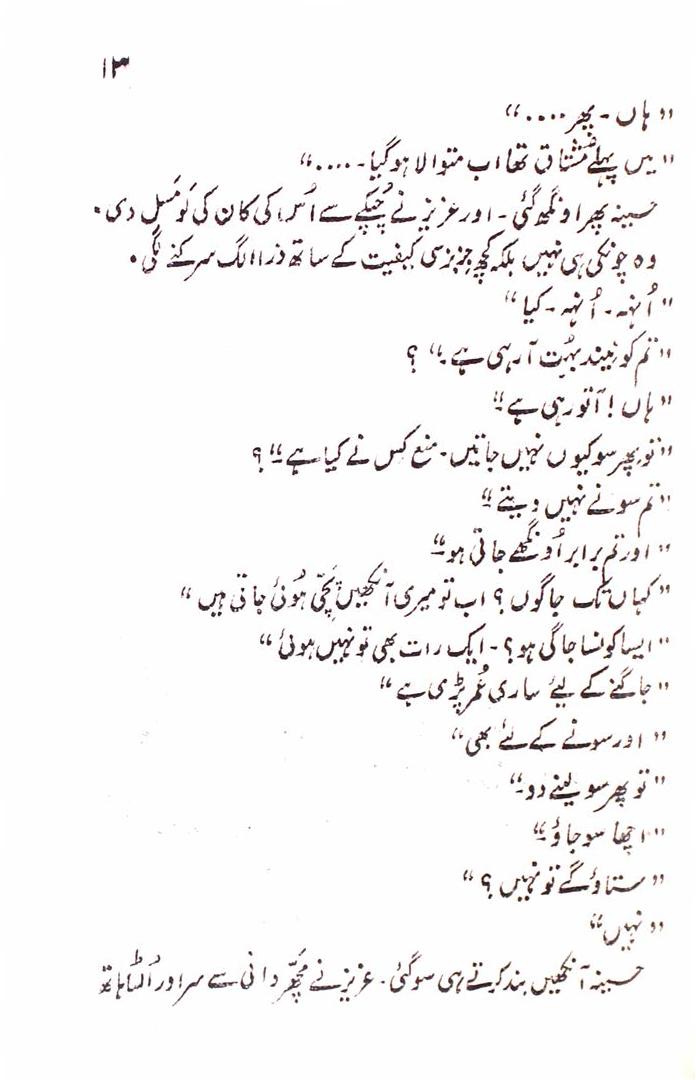 ۱۳
"ہاں - پھر ...."
"میں پہلے مشتاق تھا اب متوالا ہو گیا - ...."
حسینہ پھر اونگھ گئی - اور عزیز نے چُپکے سے اُس کی کان کی لَو مَسل دی۔
وہ چونکی ہی نہیں بلکہ کچھ جِزبِزسی کیفیت کے ساتھ ذرا الگ سرکنے لگی۔
"اُنہہ - اُنہہ - کیا"
"تم کو نیند بہُت آ رہی ہے۔" ؟
"ہاں ! آ تو رہی ہے۔"
"تو پھر سو کیوں نہیں جاتیں - منع کِس نے کیا ہے۔" ؟
"تم سونے نہیں دیتے۔"
"اور تم برابر اُونگھے جاتی ہو۔"
"کہاں تک جاگوں ؟ اب تو میری آنکھیں پچّی ہُوئی جاتی ہیں"
"ایسا کونسا جاگی ہو ؟ - ایک رات بھی تو نہیں ہوئی"
"جاگنے کے لیٔے ساری عُمر پڑی ہے"
"اور سونے کے لئے بھی"
"تو پھر سو لینے دو۔"
"اچھا سو جاؤ۔"
"ستاؤ گے تو نہیں ؟"
"نہیں"
حسینہ آنکھیں بند کرتے ہی سو گئی - عزیز نے مچھّر دانی سے سر اور اُلٹا ہاتھ